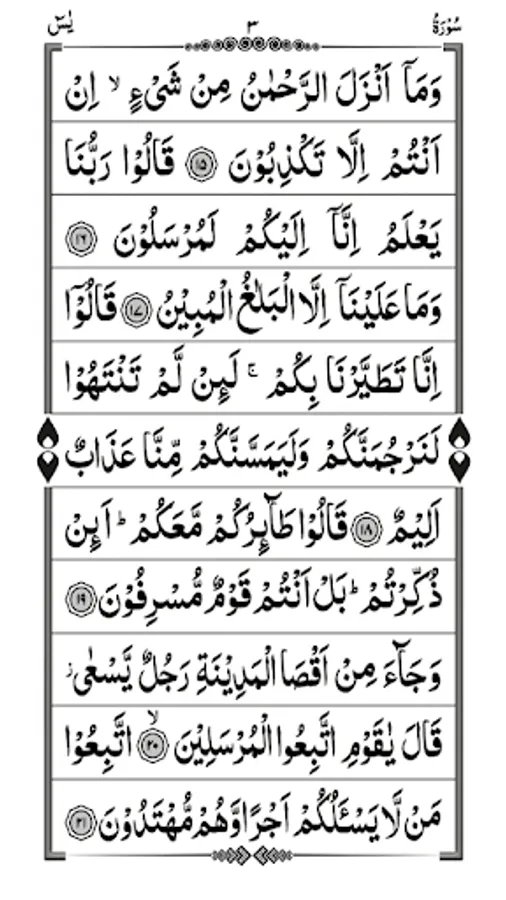 سُوْرَةُ ٣ يٰسٓ
وَمَاۤ اَنْزَلَ الرَّحْمٰنُ مِنْ شَیْءٍ ۙ اِنْ
اَنْتُمْ اِلَّا تَكْذِبُوْنَ ۝١٥ قَالُوْا رَبُّنَا
يَعْلَمُ اِنَّاۤ اِلَيْكُمْ لَمُرْسَلُوْنَ ۝١٦
وَمَا عَلَيْنَاۤ اِلَّا الْبَلٰغُ الْمُبِيْنُ ۝١٧ قَالُوْۤا
اِنَّا تَطَيَّرْنَا بِكُمْ ۚ لَئِنْ لَّمْ تَنْتَهُوْا
لَنَرْجُمَنَّكُمْ وَلَيَمَسَّنَّكُمْ مِّنَّا عَذَابٌ
اَلِيْمٌ ۝١٨ قَالُوْا طَآئِرُكُمْ مَّعَكُمْ ؕ اَئِنْ
ذُكِّرْتُمْ ؕ بَلْ اَنْتُمْ قَوْمٌ مُّسْرِفُوْنَ ۝١٩
وَجَآءَ مِنْ اَقْصَا الْمَدِيْنَةِ رَجُلٌ يَّسْعٰى ز
قَالَ يٰقَوْمِ اتَّبِعُوا الْمُرْسَلِيْنَ ۙ۝٢٠ اتَّبِعُوْا
مَنْ لَّا يَسْـَٔلُكُمْ اَجْرًا وَّهُمْ مُّهْتَدُوْنَ ۝٢١